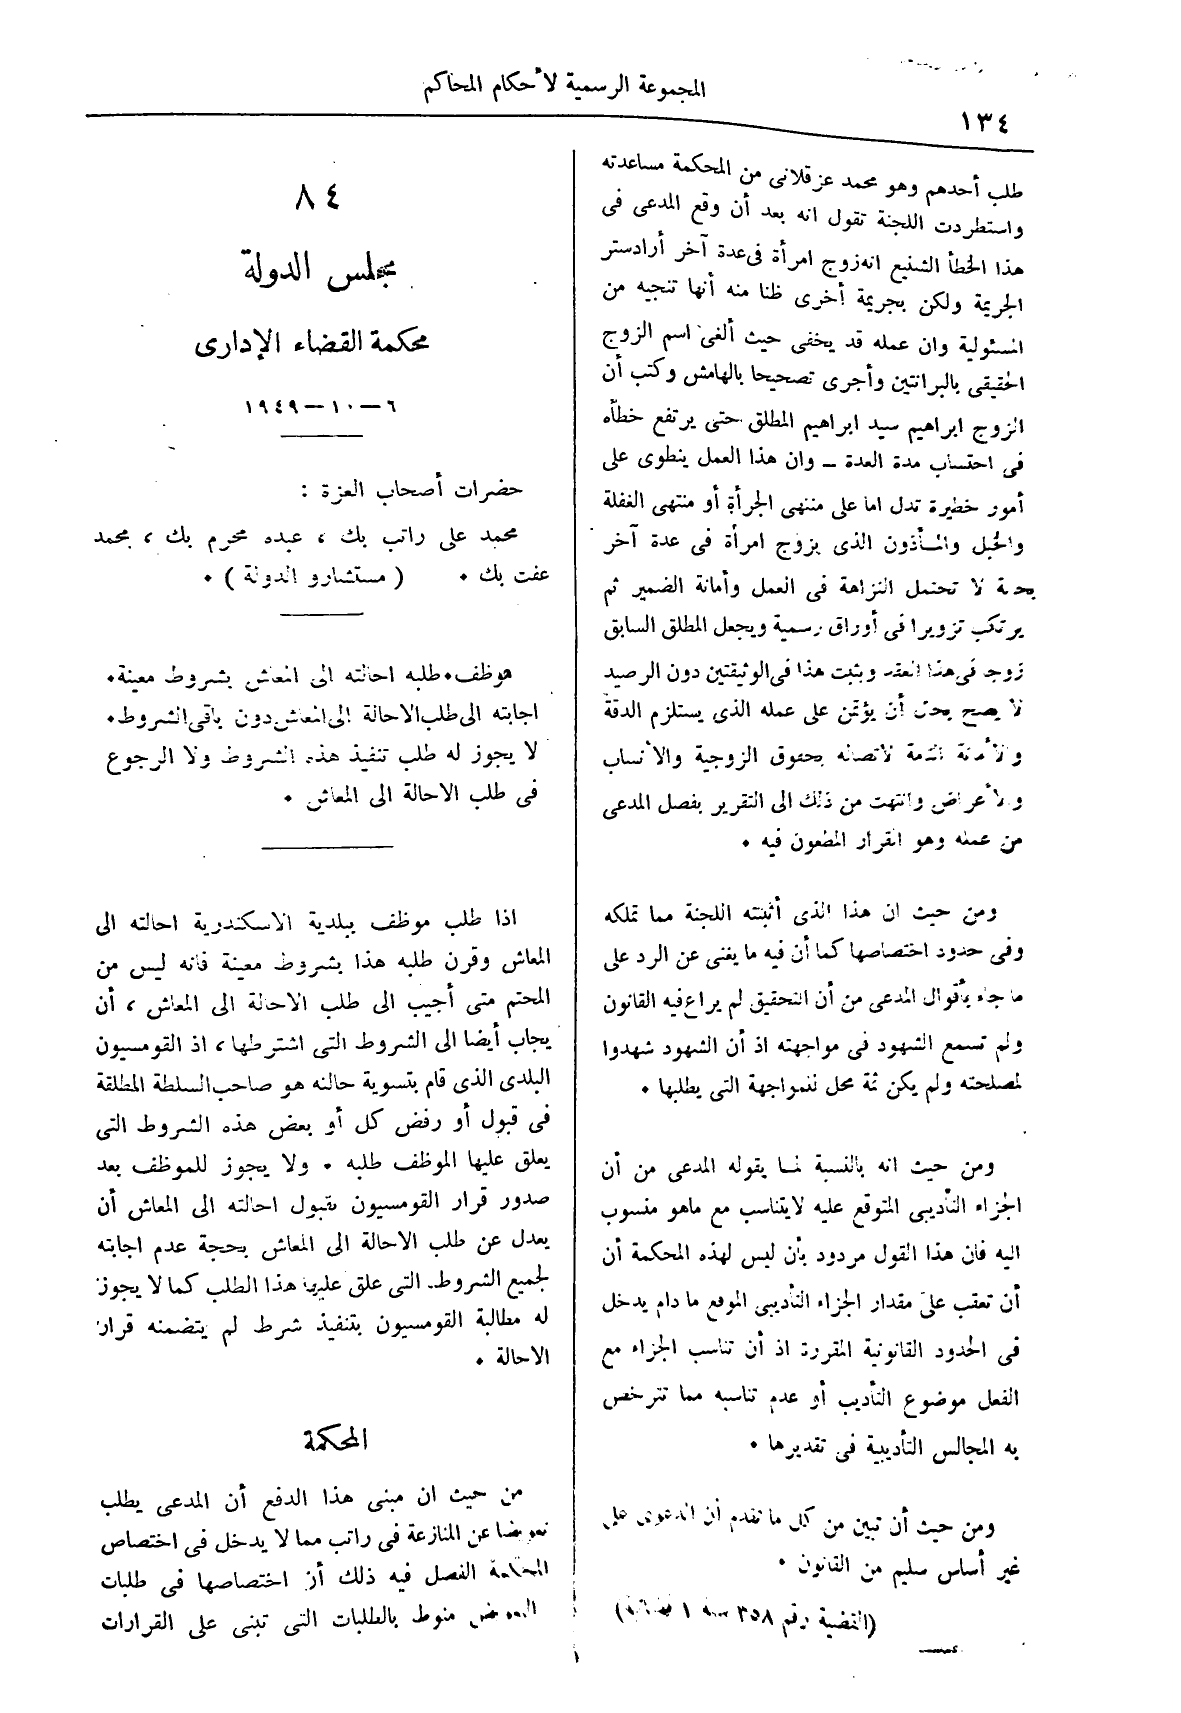 المجموعة الرسمية لأحكام المحاكم
١٣٤
طلب أحدهم وهو محمد عزقلانى من المحكمة مساعدته
واستطردت اللجنة تقول انه بعد أن وقع المدعى فى
هذا الخطأ الشنيع انه زوج امرأة فى عدة آخر أراد ستر
الجريمة ولكن بجريمة أخرى ظنا منه أنها تنجيه من
المسئولية وان عمله قد يخفى حيث ألغى اسم الزوج
الحقيقى بالبرانتين وأجرى تصحيحا بالهامش وكتب أن
الزوج ابراهيم سيد ابراهيم المطلق حتى يرتفع خطأه
فى احتساب مدة العدة – وان هذا العمل ينطوى على
أمور خطيرة تدل اما على منتهى الجرأة أو منتهى الغفلة
والجهل والمأذون الذى يزوج امرأة فى عدة آخر
بحجة لا تحتمل النزاهة فى العمل وأمانة الضمير ثم
يرتكب تزويرا فى أوراق رسمية ويجعل المطلق السابق
زوجا فى هذا العقد ويثبت هذا فى الوثيقتين دون الرصيد
لا يصح بحال أن يؤتمن على عمله الذى يستلزم الدقة
والأمانة التامة لاتصاله بحقوق الزوجية والأنساب
والأعراض وانتهت من ذلك الى التقرير بفصل المدعى
من عمله وهو القرار المطعون فيه ٠
ومن حيث ان هذا الذى أثبتته اللجنة مما تملكه
وفى حدود اختصاصها كما أن فيه ما يغنى عن الرد على
ما جاء بأقوال المدعى من أن التحقيق لم يراع فيه القانون
ولم تسمع الشهود فى مواجهته اذ أن الشهود شهدوا
لمصلحته ولم يكن ثمة محل للمواجهة التى يطلبها ٠
ومن حيث انه بالنسبة لما يقوله المدعى من أن
الجزاء التأديبى المتوقع عليه لا يتناسب مع ماهو منسوب
اليه فان هذا القول مردود بأن ليس لهذه المحكمة أن
أن تعقب على مقدار الجزاء التأديبى الموقع ما دام يدخل
فى الحدود القانونية المقررة اذ أن تناسب الجزاء مع
الفعل موضوع التأديب أو عدم تناسبه مما تترخص
به المجالس التأديبية فى تقديرها ٠
ومن حيث أن تبين من كل ما تقدم أن الدعوى على
غير أساس سليم من القانون ٠
(القضية رقم ٣٥٨ سنة ١ ق)
٨٤
مجلس الدولة
محكمة القضاء الإدارى
٦–١٠–١٩٤٩
حضرات أصحاب العزة :
محمد على راتب بك ، عبده محرم بك ، محمد
عفت بك ٠ ( مستشارو الدولة ) ٠
موظف٠ طلبه احالته الى المعاش بشروط معينة٠
اجابته الى طلب الاحالة الى المعاش دون باقى الشروط٠
لا يجوز له طلب تنفيذ هذه الشروط ولا الرجوع
فى طلب الاحالة الى المعاش ٠
اذا طلب موظف ببلدية الاسكندرية احالته الى
المعاش وقرن طلبه هذا بشروط معينة فانه ليس من
المحتم متى أجيب الى طلب الاحالة الى المعاش ، أن
يجاب أيضا الى الشروط التى اشترطها ، اذ القومسيون
البلدى الذى قام بتسوية حالته هو صاحب السلطة المطلقة
فى قبول أو رفض كل أو بعض هذه الشروط التى
يعلق عليها الموظف طلبه ٠ ولا يجوز للموظف بعد
صدور قرار القومسيون بقبول احالته الى المعاش أن
يعدل عن طلب الاحالة الى المعاش بحجة عدم اجابته
لجميع الشروط التى علق عليها هذا الطلب كما لا يجوز
له مطالبة القومسيون بتنفيذ شرط لم يتضمنه قرار
الاحالة ٠
المحكمة
من حيث ان مبنى هذا الدفع أن المدعى يطلب
تعويضا عن المنازعة فى راتب مما لا يدخل فى اختصاص
المحكمة الفصل فيه ذلك أن اختصاصها فى طلبات
التعويض منوط بالطلبات التى تبنى على القرارات